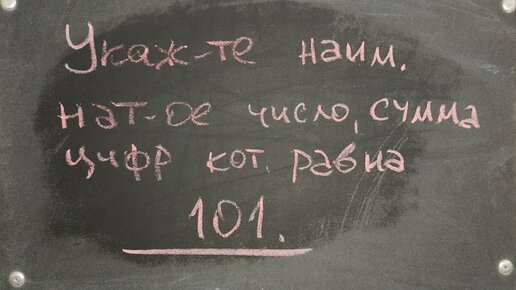 Укаж-те наим.
нат-ое число, сумма
цифр кот. равна
101.